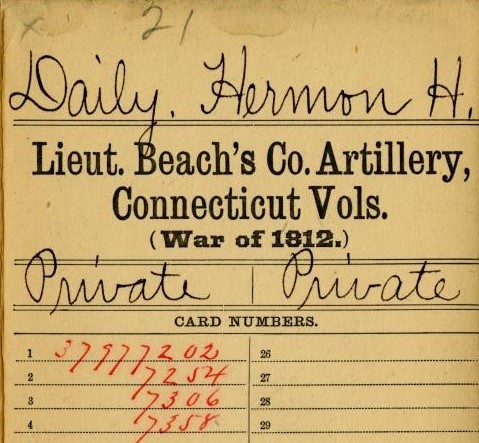 x 21
Daily, Hermon H.
Lieut. Beach's Co. Artillery,
Connecticut Vols.
(War of 1812.)
Private | Private
CARD NUMBERS.
1 37977202 26
2 7254 27
3 7306 28
4 7358 29